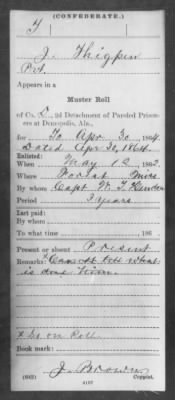 (CONFEDERATE.)
T
J. Thigpin
Pvt.
Appears in a
Muster Roll
of Co. C, 2d Detachment of Paroled Prison-
ers at Demopolis, Ala.,
for To Apr 30, 1864.
Dated Apr 30, 1864.
Enlisted:
When May 12, 1862.
Where Forest Miss
By whom Capt W. T.
Period 3 years
Last paid:
By whom
To what time 186
Present or absent Present
Remarks: * Cannot tell what
is due him.
* So on Roll.
Book mark:
J. Brown
(642) Copyist.